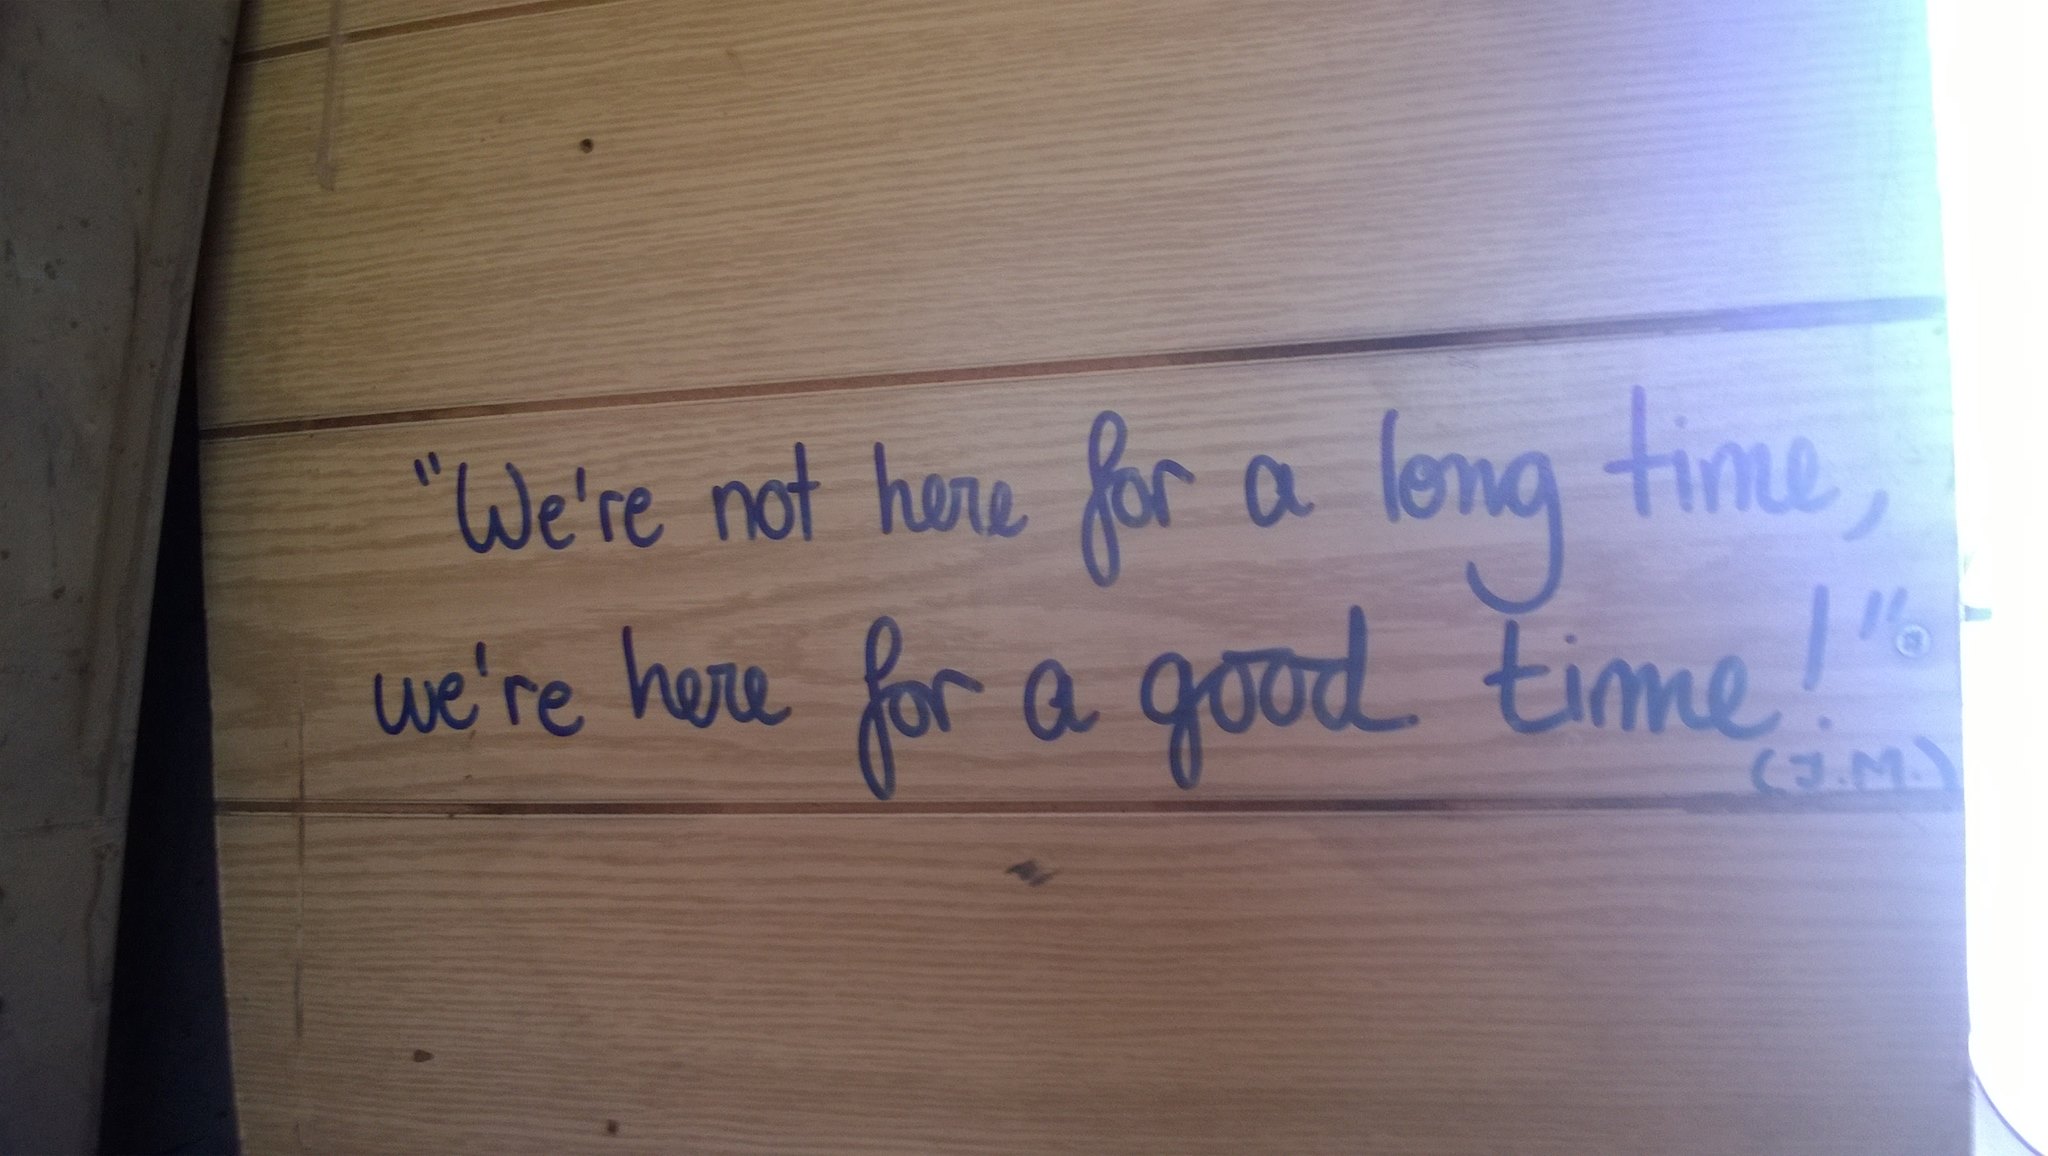 "We're not here for a long time,
we're here for a good time!"
(J.M.)